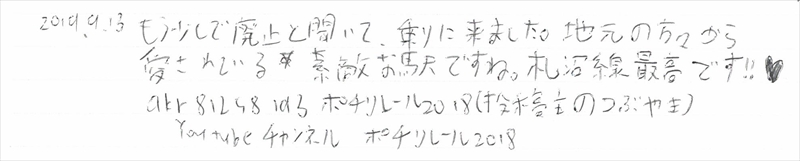 2019.9.13 もう少しで廃止と聞いて、乗りに来ました。地元の方々から
愛されている素敵な駅ですね。札沼線最高です!!♥
ポチリレール2018(投稿主のつぶやき)
Youtubeチャンネル ポチリレール2018